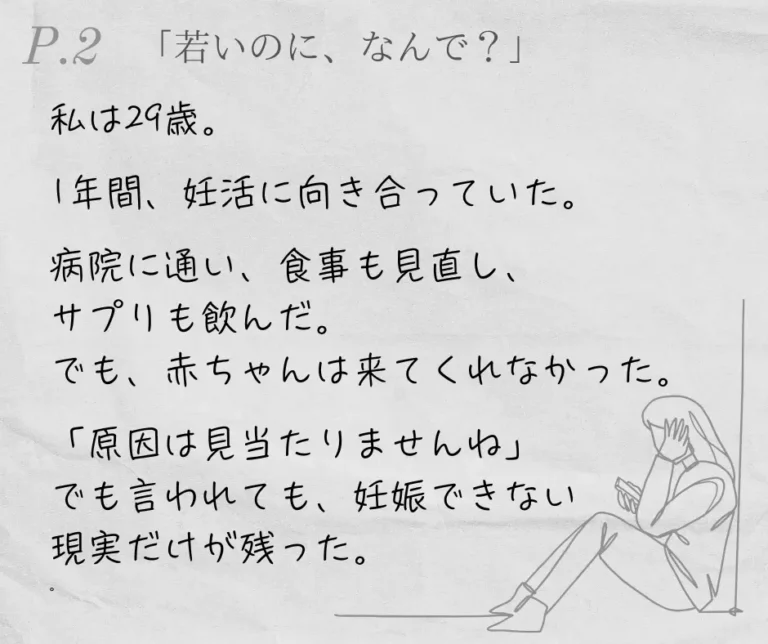 P.2 「若いのに、なんで？」
私は29歳。
1年間、妊活に向き合っていた。
病院に通い、食事も見直し、
サプリも飲んだ。
でも、赤ちゃんは来てくれなかった。
「原因は見当たりませんね」
でも言われても、妊娠できない
現実だけが残った。
。